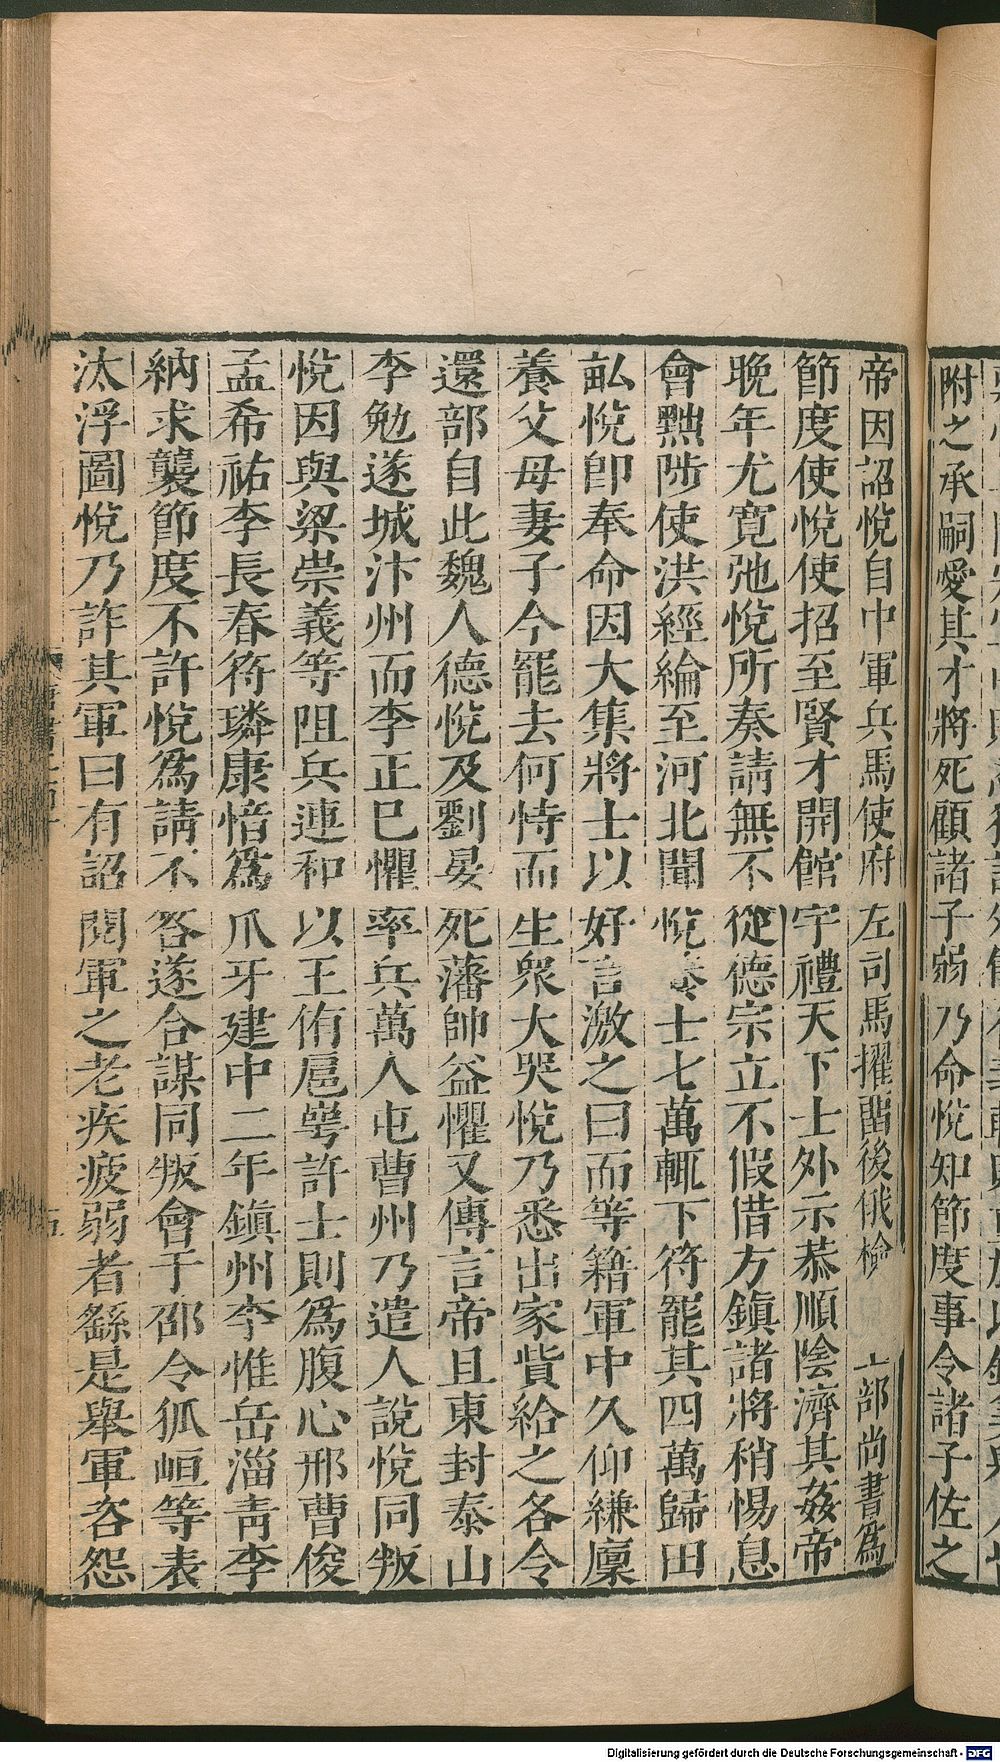 附之承嗣愛其才將死顧諸子弱乃命悅知節度事令諸子佐之
帝因詔悅自中軍兵馬使府左司馬擢畱後俄檢 部尚書為
節度使悅使招至賢才開館宇禮天下士外示恭順陰濟其姦帝
晚年尤寬弛悅所奏請無不從德宗立不假借方鎮諸將稍惕息
會黜陟使洪經綸至河北聞悅養士七萬輒下符罷其四萬歸田
畆悅卽奉命因大集將士以好言激之曰而等籍軍中久仰縑廩
養父母妻子今罷去何恃而生衆大哭悅乃悉出家貲給之各令
還部自此魏人德悅及劉晏死藩帥益懼又傳言帝且東封泰山
李勉遂城汴州而李正巳懼率兵萬人屯曹州乃遣人說悅同叛
悅因與梁崇義等阻兵連和以王侑扈崿許士則為腹心邢曹俊
孟希祐李長春符璘康愔為爪牙建中二年鎮州李惟岳淄靑李
納求襲節度不許悅為請不荅遂合謀同叛會于邵令狐峘等表
汰浮圖悅乃詐其軍曰有詔閱軍之老疾疲弱者繇是舉軍咨怨
Digitalisierung gefördert durch die Deutsche Forschungsgemeinschaft - DFG